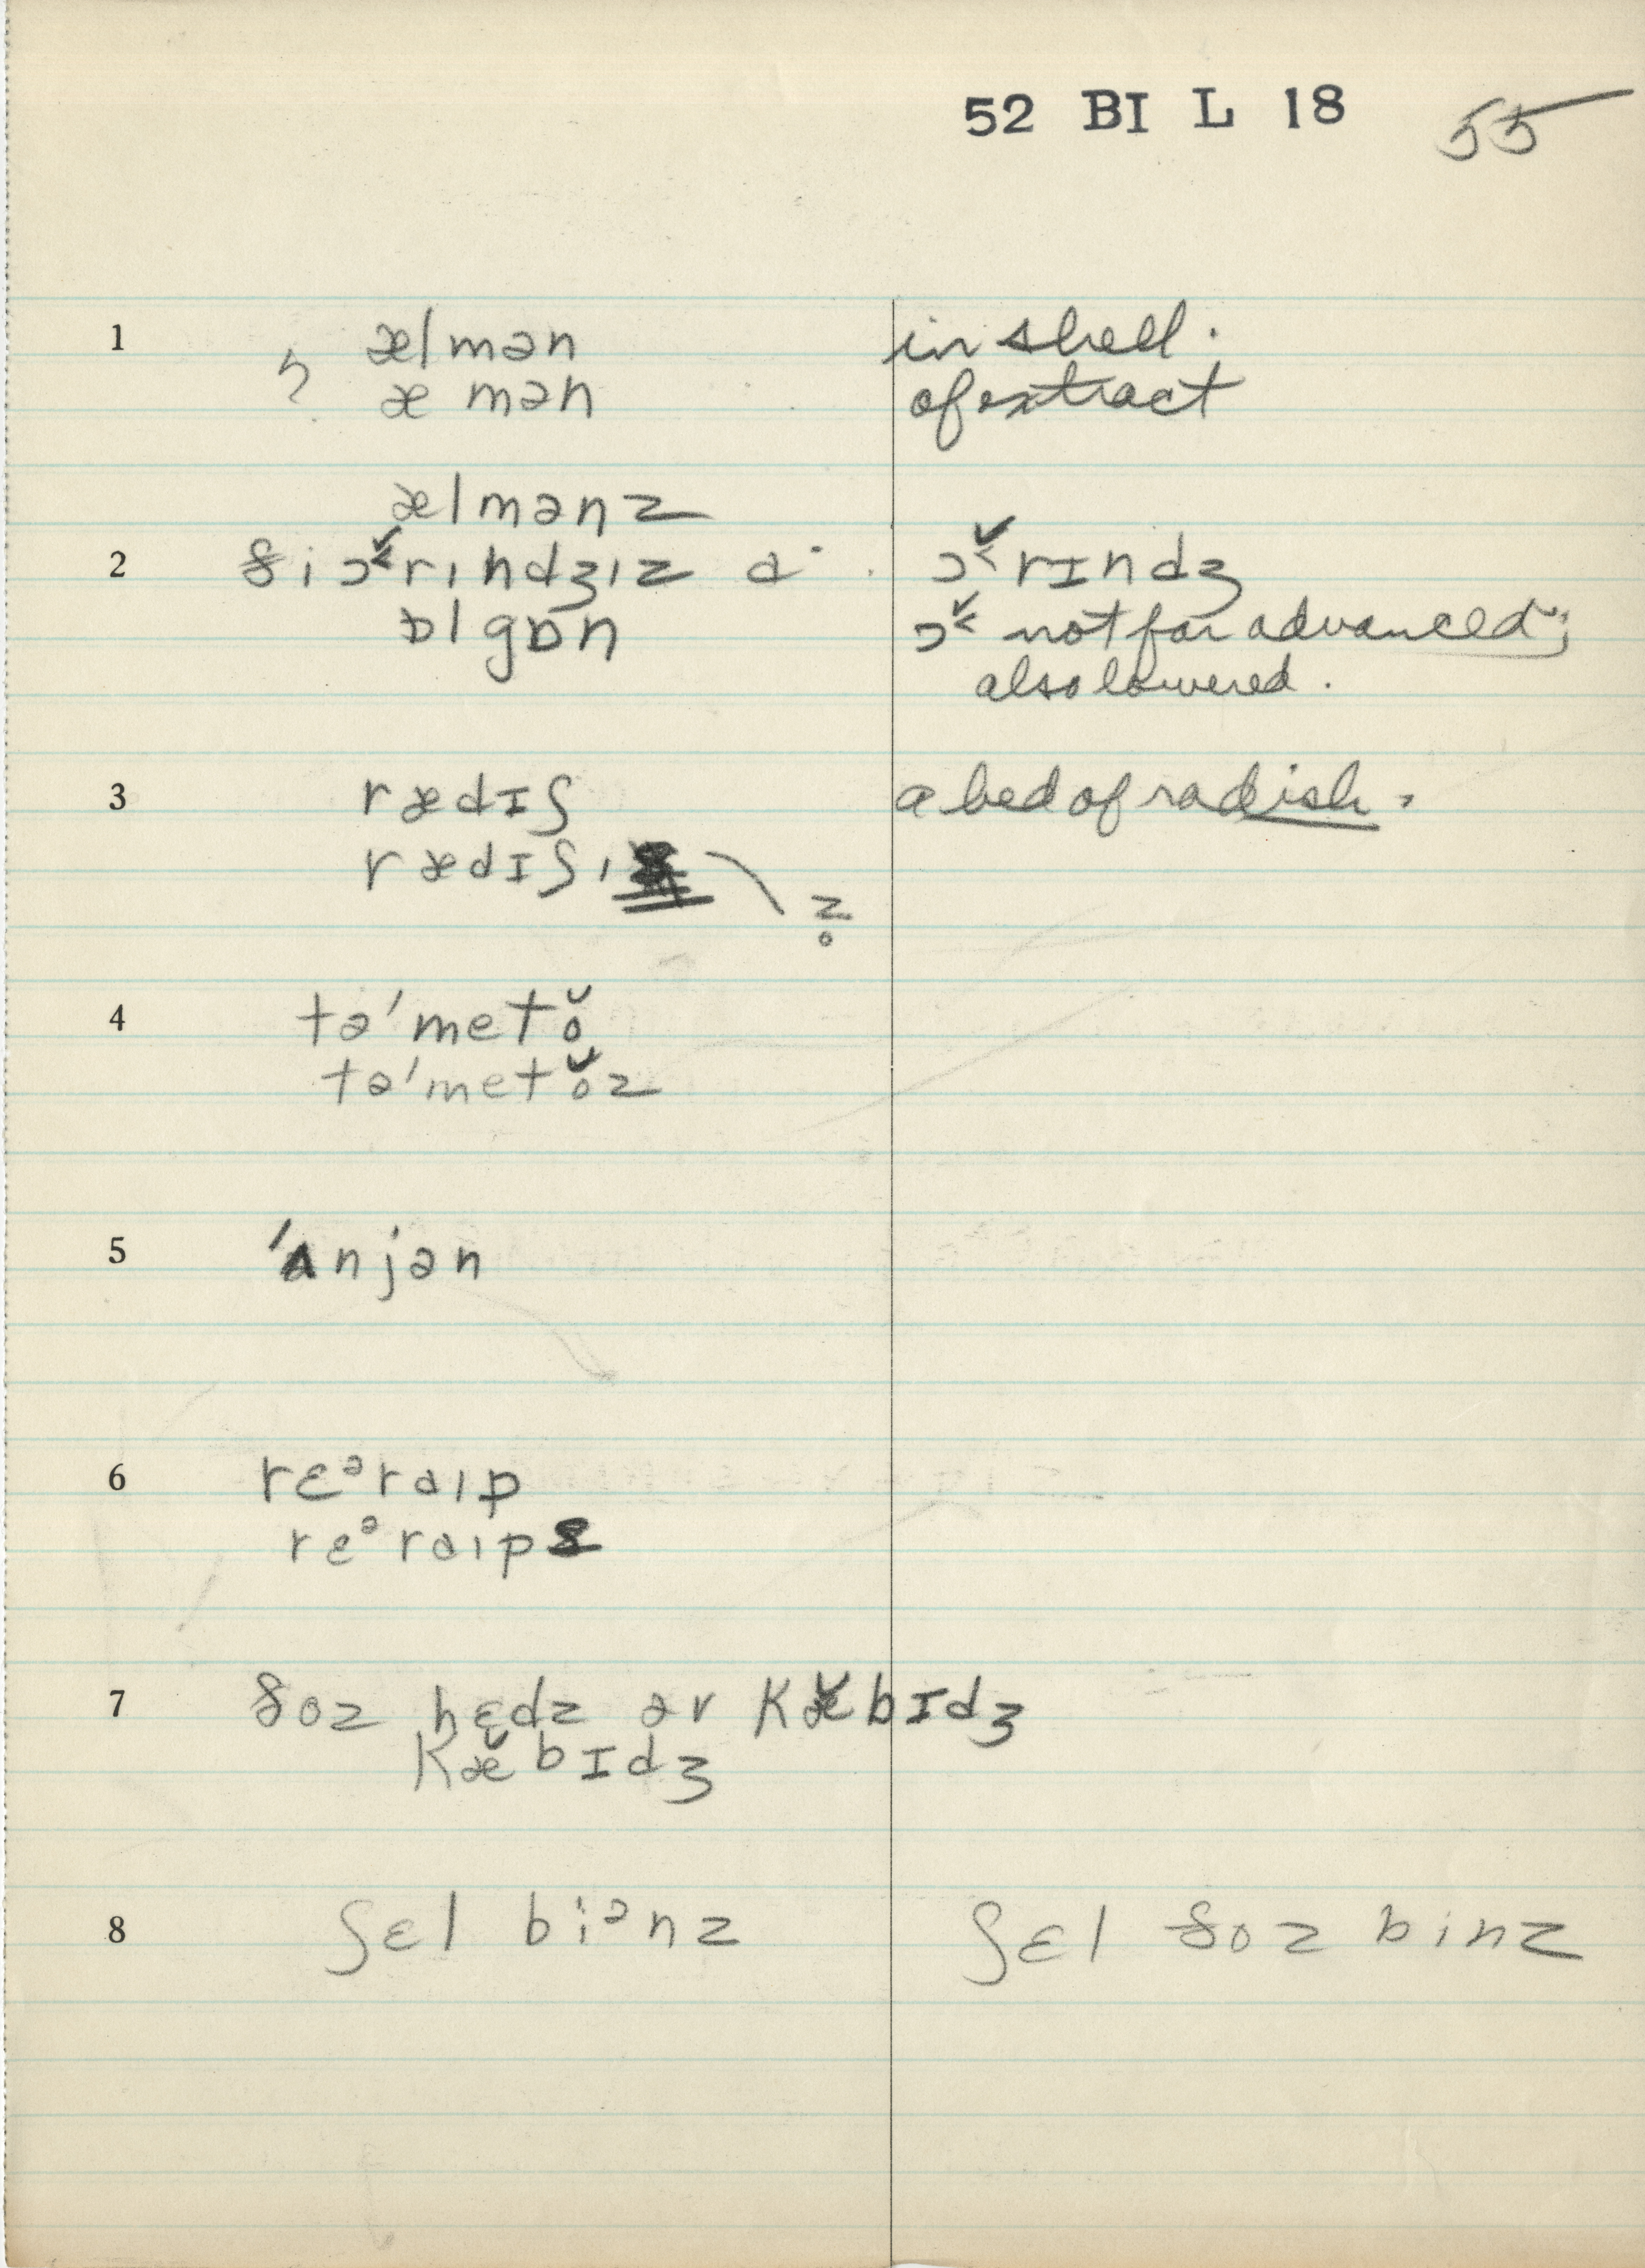 52 BI L 18 55
1 ælmən in shell.
æ mən of extract
ælmənz
2 ði ɔ̌˂rɪndʒɪz ɑ· ɔ̌˂rɪndʒ
ɒl gɒn ɔ̌˂ not far advanced;
also lowered.
3 rædɪʃ a bed of radish.
rædɪʃɪ z̥
4 tə'metŏ
tə'metŏz
5 'ʌnjən
6 rɛᵊraɪp
rɛᵊraɪps
7 ðoz hɛdz ər kæ̌bɪdʒ
kæ̌bɪdʒ
8 ʃɛl biᵊnz ʃɛl ðoz binz